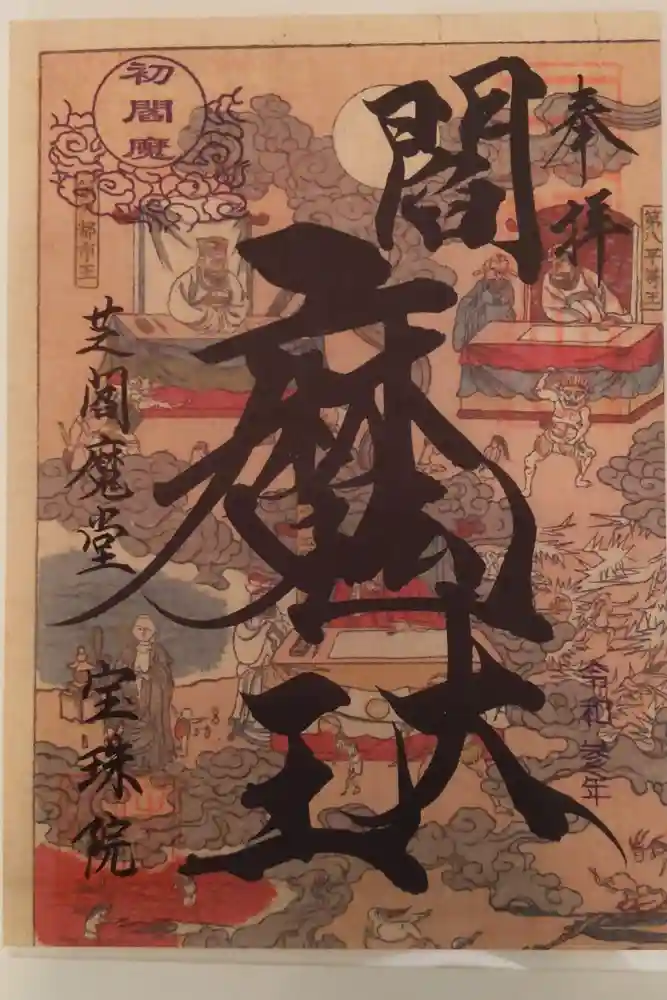 奉拝
第八平等王
令和参年
閻魔大王
初閻魔
都市王
芝閻魔堂
宝珠院